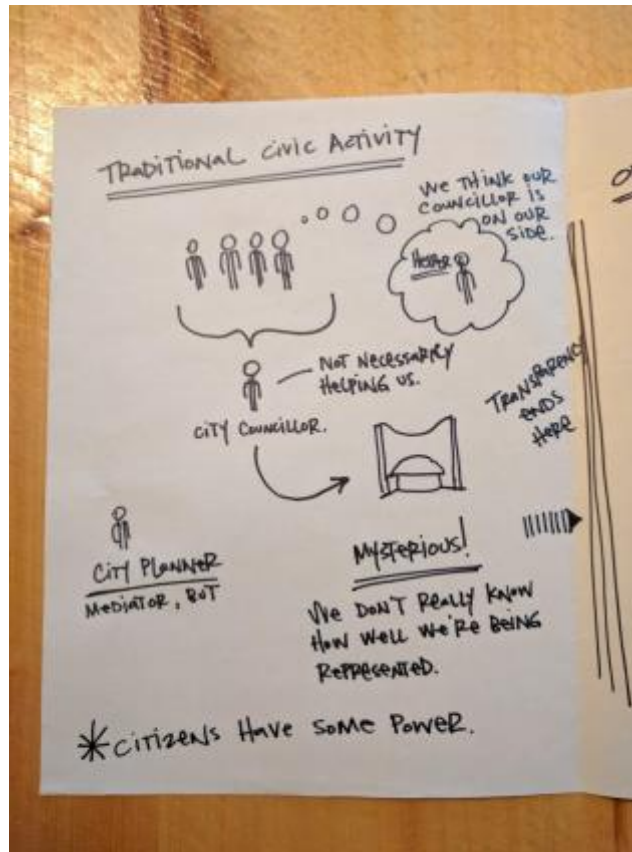 TRADITIONAL CIVIC ACTIVITY
WE THINK OUR
COUNCILLOR IS
ON OUR
SIDE.
NOT NECESSARILY
HELPING US.
CITY COUNCILLOR.
TRANSPARENCY
ENDS
HERE
CITY PLANNER
MEDIATOR, BUT
MYSTERIOUS!
WE DON'T REALLY KNOW
HOW WELL WE'RE BEING
REPRESENTED.
*CITIZENS HAVE SOME POWER.